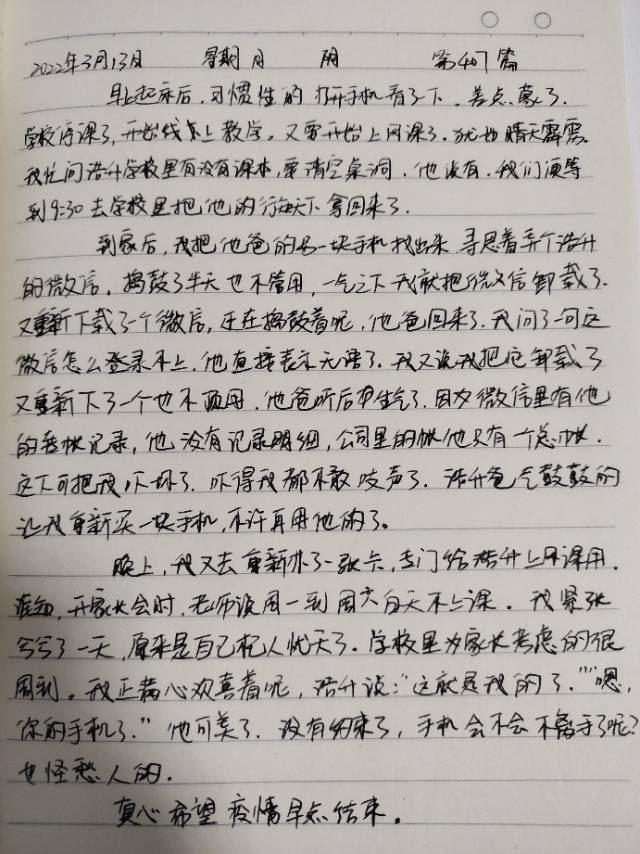 2022年3月13日 星期日 阴 第407篇
早上起床后，习惯性的打开手机看了下，差点蒙了。
学校停课了，开始线上教学。又要开始上网课了。犹如晴天霹雳。
我忙问浩升学校里有没有课本，要清空桌洞，他没有。我们便等
到9:30去学校里把他的行李下拿回来了。
到家后，我把他爸的另一块手机找出来，寻思着弄个浩升
的微信，捣鼓了半天也不管用，一气之下我就把微信卸载了。
又重新下载了一个微信，还在捣鼓着呢，他爸回来了。我问了一句这
微信怎么登录不上，他直接表示无语了。我又说我把它卸载了
又重新下了一个也不顶用，他爸听后生气了。因为微信里有他
的转账记录，他没有记录明细，公司里的帐他只有一个总帐。
这下可把我吓坏了，吓得我都不敢吱声了。浩升爸气鼓鼓的
让我重新买一块手机，不许再用他的了。
晚上，我又去重新办了一张卡，专门给浩升上网课用。
谁知，开家长会时，老师说周一到周六白天不上课。我紧张
兮兮了一天，原来是自己杞人忧天了。学校里为家长考虑的很
周到。我正满心欢喜着呢，浩升说：“这就是我的了。”“嗯，
你的手机了。”他可美了。没有约束了，手机会不会不离手了呢？
也怪愁人的。
真心希望疫情早点结束。